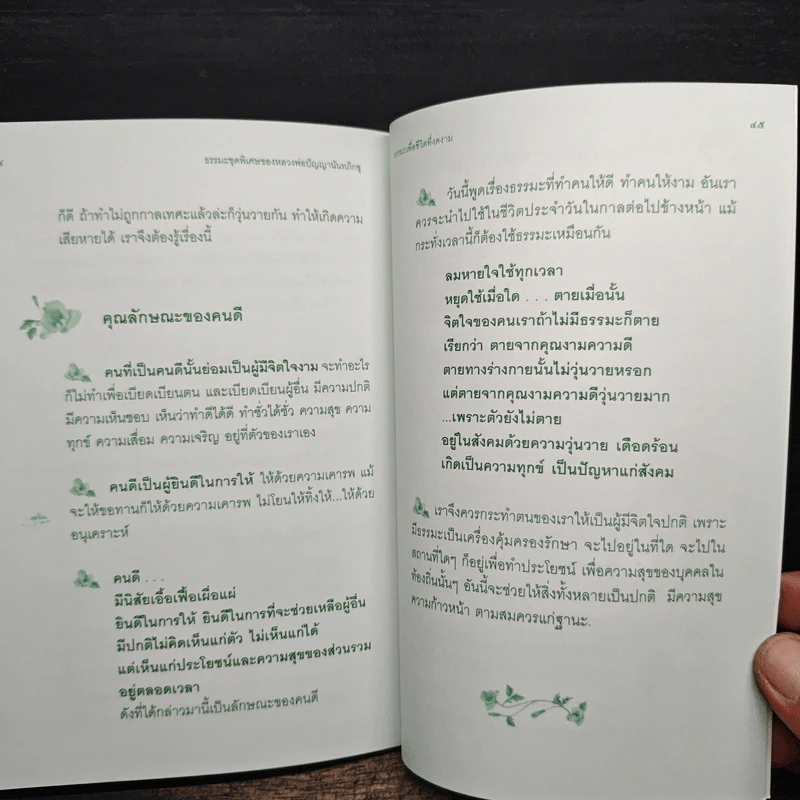 ธรรมะชุดพิเศษของหลวงพ่อปัญญานันทภิกขุ
ก็ดี ถ้าทำไม่ถูกกาลเทศะแล้วล่ะก็วุ่นวายกัน ทำให้เกิดความ
เสียหายได้ เราจึงต้องรู้เรื่องนี้
คุณลักษณะของคนดี
คนที่เป็นคนดีนั้นย่อมเป็นผู้มีจิตใจงาม จะทำอะไร
ก็ไม่ทำเพื่อเบียดเบียนตน และเบียดเบียนผู้อื่น มีความปกติ
มีความเห็นชอบ เห็นว่าทำดีได้ดี ทำชั่วได้ชั่ว ความสุข ความ
ทุกข์ ความเสื่อม ความเจริญ อยู่ที่ตัวของเราเอง
คนดีเป็นผู้ยินดีในการให้ ให้ด้วยความเคารพ แม้
จะให้ขอทานก็ให้ด้วยความเคารพ ไม่โยนให้ทิ้งให้...ให้ด้วย
อนุเคราะห์
คนดี . . .
มีนิสัยเอื้อเฟื้อเผื่อแผ่
ยินดีในการให้ ยินดีในการที่จะช่วยเหลือผู้อื่น
มีปกติไม่คิดเห็นแก่ตัว ไม่เห็นแก่ได้
แต่เห็นแก่ประโยชน์และความสุขของส่วนรวม
อยู่ตลอดเวลา
ดังที่ได้กล่าวมานี้เป็นลักษณะของคนดี
ธรรมะเพื่อชีวิตที่งดงาม
๔๕
วันนี้พูดเรื่องธรรมะที่ทำคนให้ดี ทำคนให้งาม อันเรา
ควรจะนำไปใช้ในชีวิตประจำวันในกาลต่อไปข้างหน้า แม้
กระทั่งเวลานี้ก็ต้องใช้ธรรมะเหมือนกัน
ลมหายใจใช้ทุกเวลา
หยุดใช้เมื่อใด . . . ตายเมื่อนั้น
จิตใจของคนเราถ้าไม่มีธรรมะก็ตาย
เรียกว่า ตายจากคุณงามความดี
ตายทางร่างกายนั้นไม่วุ่นวายหรอก
แต่ตายจากคุณงามความดีวุ่นวายมาก
...เพราะตัวยังไม่ตาย
อยู่ในสังคมด้วยความวุ่นวาย เดือดร้อน
เกิดเป็นความทุกข์ เป็นปัญหาแก่สังคม
เราจึงควรกระทำตนของเราให้เป็นผู้มีจิตใจปกติ เพราะ
มีธรรมะเป็นเครื่องคุ้มครองรักษา จะไปอยู่ในที่ใด จะไปใน
สถานที่ใดๆ ก็อยู่เพื่อทำประโยชน์ เพื่อความสุขของบุคคลใน
ท้องถิ่นนั้นๆ อันนี้จะช่วยให้สิ่งทั้งหลายเป็นปกติ มีความสุข
ความก้าวหน้า ตามสมควรแก่ฐานะ.